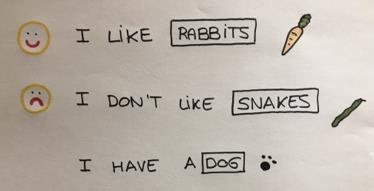 I LIKE RABBITS
I DON'T LIKE SNAKES
I HAVE A DOG